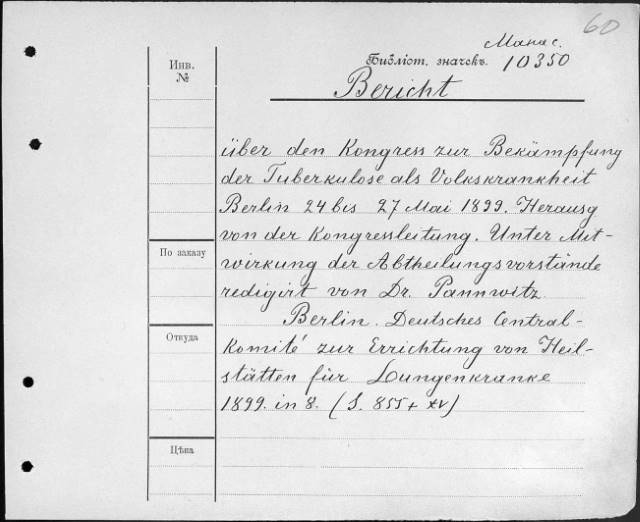 60
Манас.
Инв.
№
Библіот. значекъ. 10350
Bericht
über den Kongress zur Bekämpfung
der Tuberkulose als Volkskrankheit
Berlin 24 bis 27 Mai 1899. Herausg
von der Kongressleitung. Unter Mit-
По заказу
wirkung der Abtheilungsvorstände
redigirt von Dr. Pannwitz.
Berlin. Deutsches Central-
Откуда
Komité zur Errichtung von Heil-
stätten für Lungenkranke
1899. in 8. (S. 855 + XV)
Цѣна